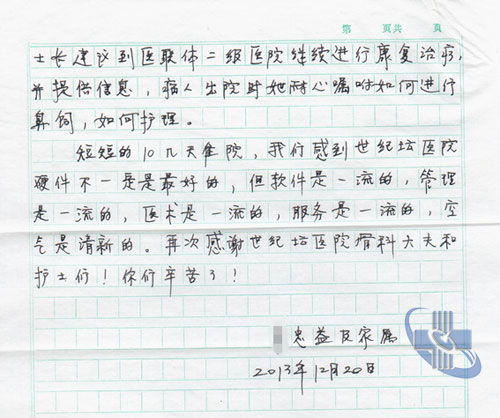 第 页共 页
士长建议到医联体二级医院继续进行康复治疗,
并提供信息,病人出院时她耐心嘱咐如何进行
鼻饲,如何护理。
短短的10几天住院,我们感到世纪坛医院
硬件不一定是最好的,但软件是一流的,管理
是一流的,医术是一流的,服务是一流的,空
气是清新的。再次感谢世纪坛医院骨科大夫和
护士们!你们辛苦了!
忠益及家属
2013年12月20日